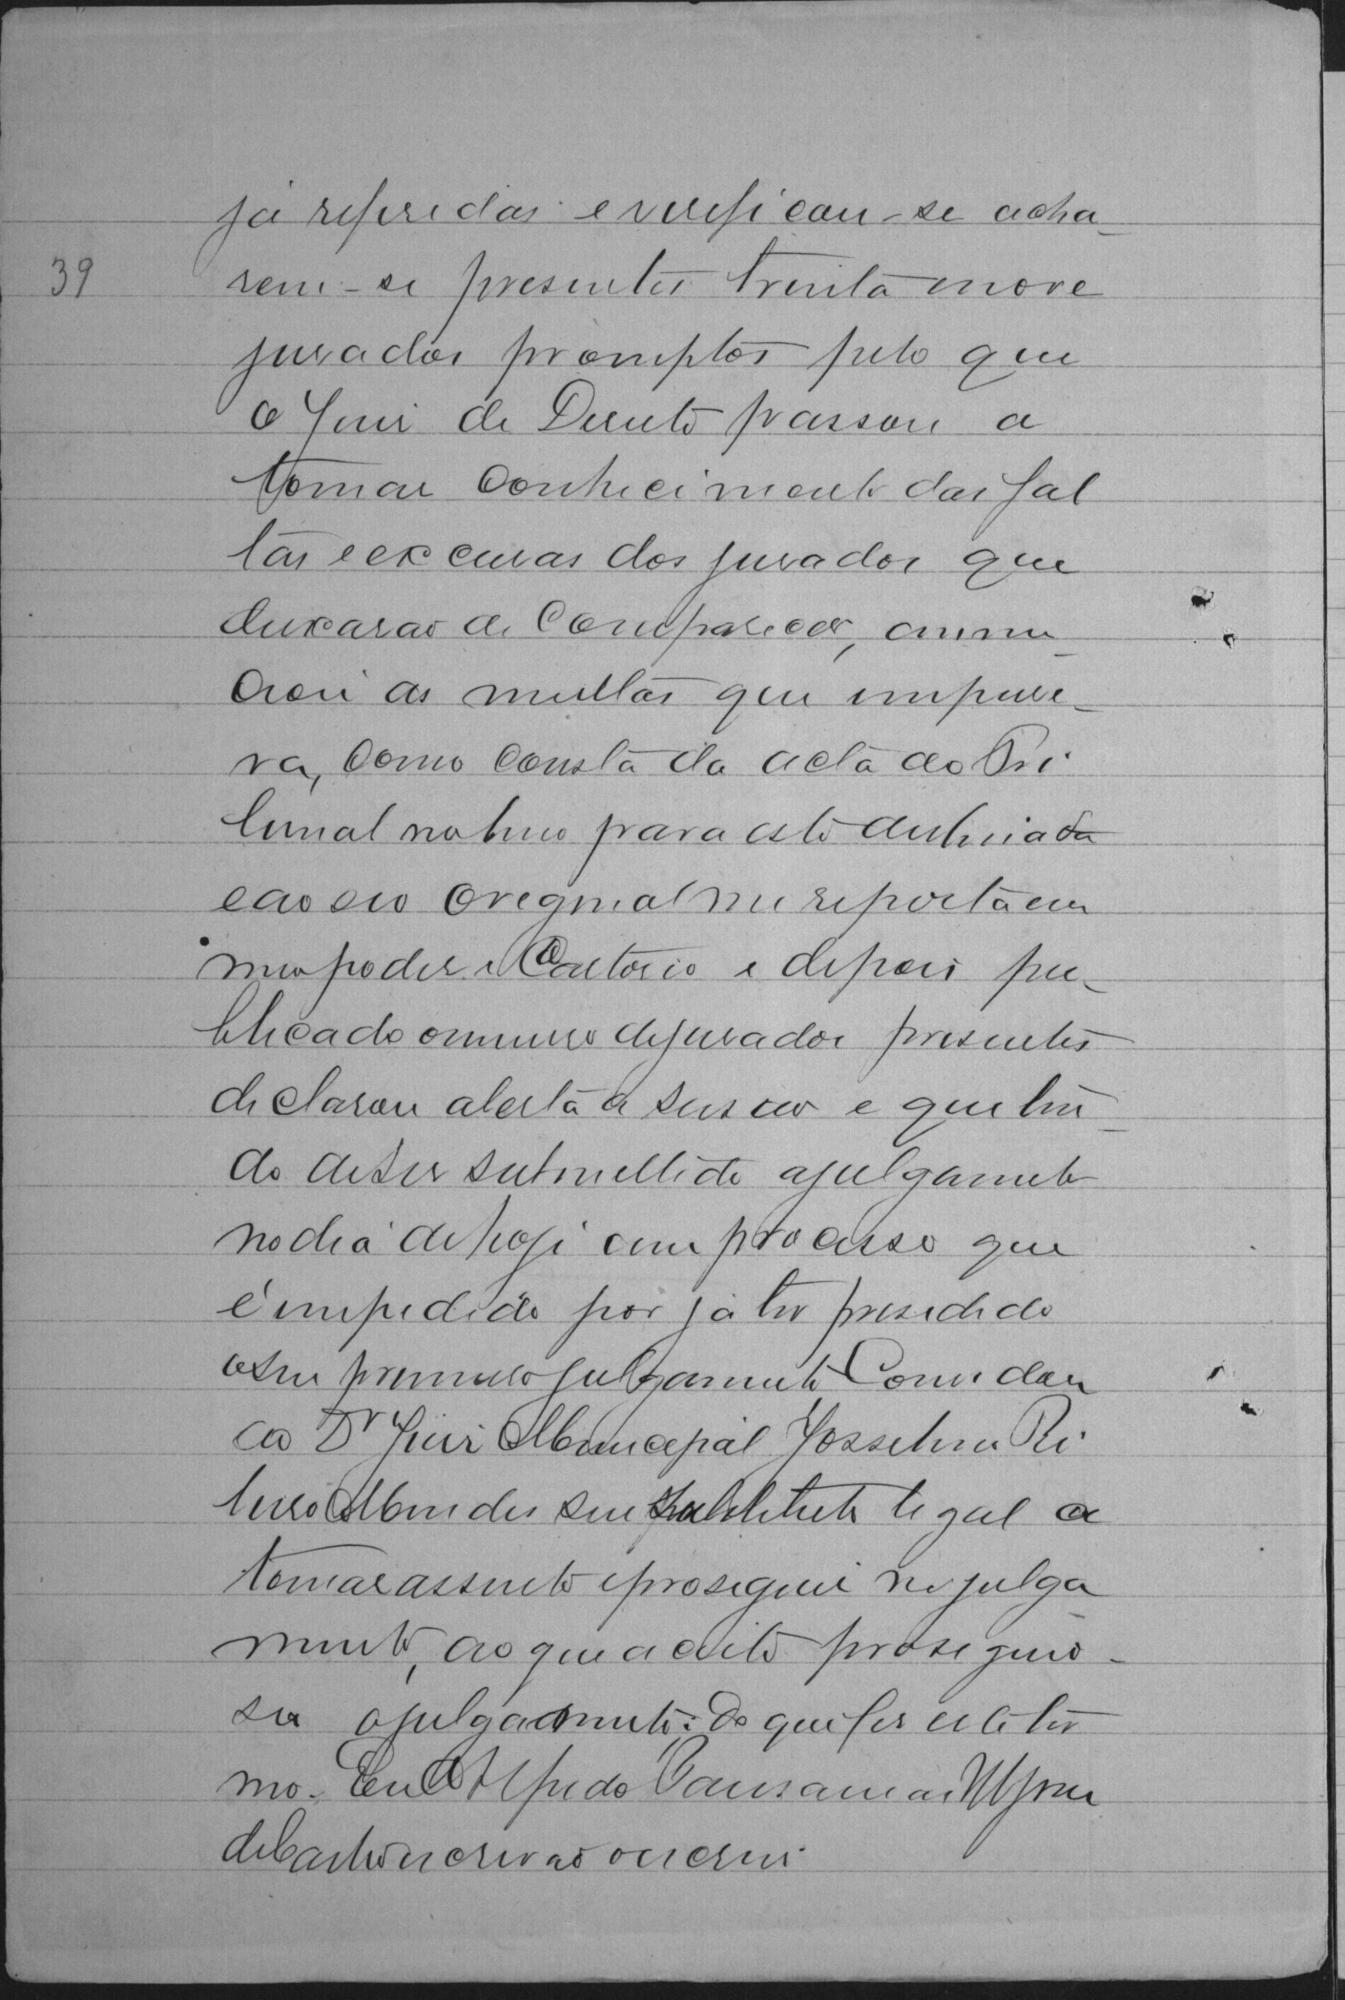 já referidas e verificou-se acha-
39
rem-se presentes trinta e nove
jurados promptos pelo que
o Juiz de Direito passou a
tomar conhecimento das fal
tas e excusas dos jurados que
deixarão de comparecer, annu-
as multas que impuse-
ra, como consta da acta do Tri
bunal no livro para isto destinada
e ao seo original me reporto em
meo poder e Cartorio e depois pu-
blicado o numero de jurados presentes
declarou aberta a sessão e que ten-
do de ser submettido a julgamento
no dia de hoje um processo que
é impedido por já ter presedido
o seu primeiro julgamento Convidou
ao Dr Juiz Municipal Josselino Ri
beiro Mendes seu substituto legal a
tomar assento e proseguir no julga
mento, ao que aceito proseguio-
se o julgamento: Do que fiz este ter
mo. Eu Alfredo
de Castro escrivão o escrevi.